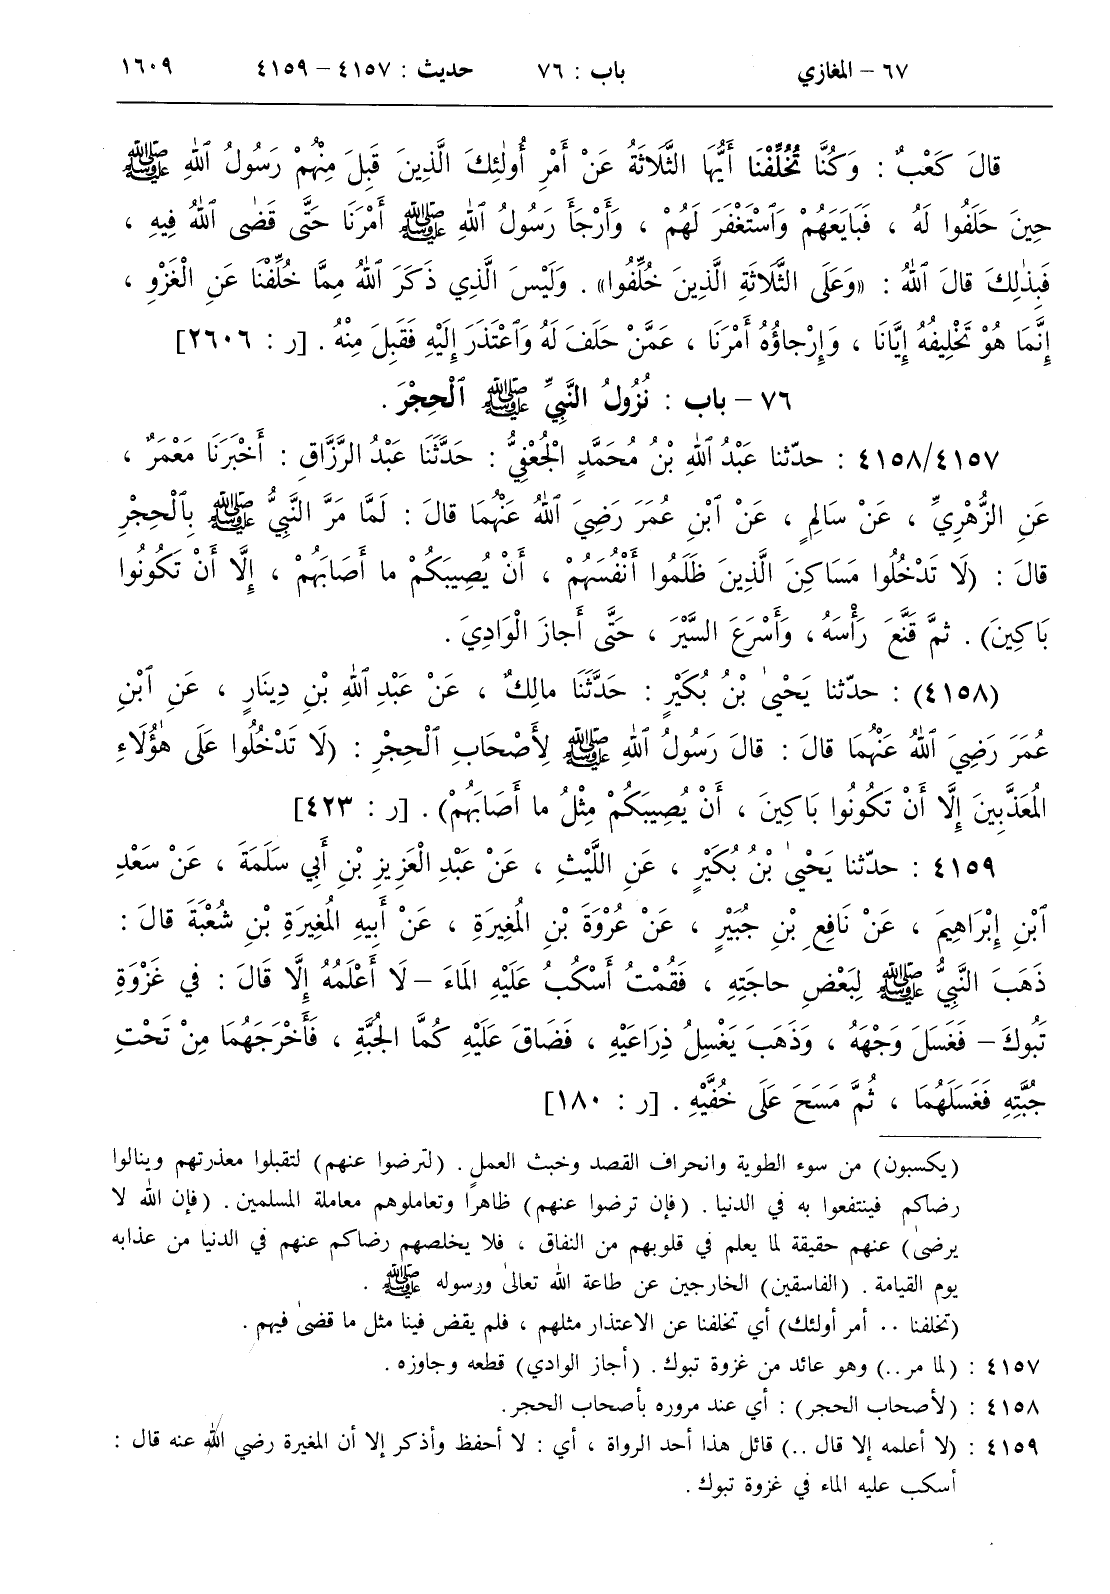 ٦٧ – المغازي باب : ٧٦ حديث : ٤١٥٧ – ٤١٥٩ ١٦٠٩
قالَ كَعْبٌ : وَكُنَّا تُخُلِّفْنَا أَيُّهَا الثَّلَاثَةُ عَنْ أَمْرِ أُولٰئِكَ الَّذِينَ قَبِلَ مِنْهُمْ رَسُولُ اللهِ ﷺ
حِينَ حَلَفُوا لَهُ ، فَبَايَعَهُمْ وَاسْتَغْفَرَ لَهُمْ ، وَأَرْجَأَ رَسُولُ اللهِ ﷺ أَمْرَنَا حَتَّى قَضٰى اللهُ فِيهِ ،
فَبِذٰلِكَ قالَ اللهُ : «وَعَلَى الثَّلَاثَةِ الَّذِينَ خُلِّفُوا» . وَلَيْسَ الَّذِي ذَكَرَ اللهُ مِمَّا خُلِّفْنَا عَنِ الْغَزْوِ ،
إِنَّمَا هُوَ تَخْلِيفُهُ إِيَّانَا ، وَإِرْجاؤُهُ أَمْرَنَا ، عَمَّنْ حَلَفَ لَهُ وَاعْتَذَرَ إِلَيْهِ فَقَبِلَ مِنْهُ . [ر : ٢٦٠٦]
٧٦ – باب : نُزُولُ النَّبِيِّ ﷺ الْحِجْرَ .
٤١٥٨/٤١٥٧ : حدّثنا عَبْدُ اللهِ بْنُ مُحَمَّدٍ الْجُعْفِيُّ : حَدَّثَنَا عَبْدُ الرَّزَّاقِ : أَخْبَرَنَا مَعْمَرٌ ،
عَنِ الزُّهْرِيِّ ، عَنْ سَالِمٍ ، عَنْ ابْنِ عُمَرَ رَضِيَ اللهُ عَنْهُمَا قالَ : لَمَّا مَرَّ النَّبِيُّ ﷺ بِالْحِجْرِ
قالَ : (لَا تَدْخُلُوا مَسَاكِنَ الَّذِينَ ظَلَمُوا أَنْفُسَهُمْ ، أَنْ يُصِيبَكُمْ ما أَصَابَهُمْ ، إِلَّا أَنْ تَكُونُوا
بَاكِينَ) . ثمَّ قَنَّعَ رَأْسَهُ ، وَأَسْرَعَ السَّيْرَ ، حَتَّى أَجازَ الْوَادِيَ .
(٤١٥٨) : حدّثنا يَحْيىٰ بْنُ بُكَيْرٍ : حَدَّثَنَا مالِكٌ ، عَنْ عَبْدِ اللهِ بْنِ دِينَارٍ ، عَنِ ابْنِ
عُمَرَ رَضِيَ اللهُ عَنْهُمَا قالَ : قالَ رَسُولُ اللهِ ﷺ لِأَصْحَابِ الْحِجْرِ : (لَا تَدْخُلُوا عَلَى هٰؤُلَاءِ
المُعَذَّبِينَ إِلَّا أَنْ تَكُونُوا بَاكِينَ ، أَنْ يُصِيبَكُمْ مِثْلُ ما أَصَابَهُمْ) . [ر : ٤٢٣]
٤١٥٩ : حدّثنا يَحْيىٰ بْنُ بُكَيْرٍ ، عَنِ اللَّيْثِ ، عَنْ عَبْدِ الْعَزِيزِ بْنِ أَبِي سَلَمَةَ ، عَنْ سَعْدِ
ابْنِ إِبْرَاهِيمَ ، عَنْ نَافِعِ بْنِ جُبَيْرٍ ، عَنْ عُرْوَةَ بْنِ المُغِيرَةِ ، عَنْ أَبِيهِ المُغِيرَةِ بْنِ شُعْبَةَ قالَ :
ذَهَبَ النَّبِيُّ ﷺ لِبَعْضِ حاجَتِهِ ، فَقُمْتُ أَسْكُبُ عَلَيْهِ المَاءَ – لَا أَعْلَمُهُ إِلَّا قَالَ : في غَزْوَةِ
تَبُوكَ – فَغَسَلَ وَجْهَهُ ، وَذَهَبَ يَغْسِلُ ذِرَاعَيْهِ ، فَضَاقَ عَلَيْهِ كُمَّا الجُبَّةِ ، فَأَخْرَجَهُمَا مِنْ تَحْتِ
جُبَّتِهِ فَغَسَلَهُمَا ، ثُمَّ مَسَحَ عَلَى خُفَّيْهِ . [ر : ١٨٠]
(يكسبون) من سوء الطوية وانحراف القصد وخبث العمل . (لترضوا عنهم) لتقبلوا معذرتهم وينالوا
رضاكم فينتفعوا به في الدنيا . (فإن ترضوا عنهم) ظاهراً وتعاملوهم معاملة المسلمين . (فإن الله لا
يرضى) عنهم حقيقة لما يعلم في قلوبهم من النفاق ، فلا يخلصهم رضاكم عنهم في الدنيا من عذابه
يوم القيامة . (الفاسقين) الخارجين عن طاعة الله تعالىٰ ورسوله ﷺ .
(تخلفنا .. أمر أولئك) أي تخلفنا عن الاعتذار مثلهم ، فلم يقض فينا مثل ما قضىٰ فيهم .
٤١٥٧ : (لما مر..) وهو عائد من غزوة تبوك . (أجاز الوادي) قطعه وجاوزه .
٤١٥٨ : (لأصحاب الحجر) : أي عند مروره بأصحاب الحجر .
٤١٥٩ : (لا أعلمه إلا قال ..) قائل هذا أحد الرواة ، أي : لا أحفظ وأذكر إلا أن المغيرة رضي الله عنه قال :
أسكب عليه الماء في غزوة تبوك .